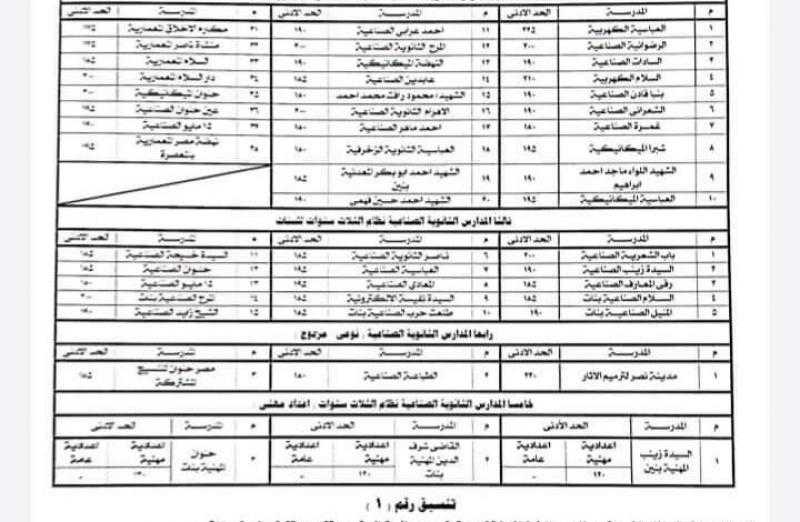 م المدرسة الحد الأدنى م المدرسة الحد الأدنى م المدرسة الحد الأدنى
١ العباسية الكهربية ٢٢٥ ١١ احمد عرابى الصناعية ١٩٠ ٢١ مكارم الاخلاق المعمارية
٢ الرضوانية الصناعية ٢٠٠ ١٢ المرج الثانوية الصناعية ٢٠٠ ٢٢ منشاة ناصر المعمارية
٣ السادات الصناعية ١٩٠ ١٣ النهضة الميكانيكية ١٩٠ ٢٣ السلام المعمارية ١٨٥
٤ السلام الكهربية ٢١٠ ١٤ عابدين الصناعية ١٨٥ ٢٤ دار السلام المعمارية ٢٠٠
٥ بنبا قادن الصناعية ١٩٠ ١٥ الشهيد / محمود رافت محمد احمد ١٨٠ ٢٥ حلوان الميكانيكية ٢٠٠
٦ الشعرانى الصناعية ١٩٠ ١٦ الاهرام الثانوية الصناعية ٢٠٠ ٢٦ عين حلوان الصناعية ١٨٥
٧ غمرة الصناعية ١٨٠ ١٧ احمد ماهر الصناعية ١٨٠ ٢٧ ١٥ مايو الصناعية
٨ شبرا الميكانيكية ١٩٥ ١٨ العباسية الثانوية الزخرفية ١٨٠ ٢٨ نهضة مصر المعمارية بالمعصرة
٩ الشهيد اللواء ماجد احمد ابراهيم ١٩٠ ١٩ الشهيد احمد ابو بكر المعدنية بنين ١٨٥
١٠ العباسية الميكانيكية ١٩٥ ٢٠ الشهيد احمد حسين فهمى ١٩٠
ثالثا المدارس الثانوية الصناعية نظام الثلاث سنوات للبنات
م المدرسة الحد الأدنى م المدرسة الحد الأدنى م المدرسة الحد الأدنى
١ باب الشعرية الصناعية ٢٠٠ ٦ ناصر الثانوية الصناعية ١٨٥ ١١ السيدة خديجة الصناعية ١٨٥
٢ السيدة زينب الصناعية ١٩٠ ٧ العباسية الصناعية ١٩٥ ١٢ حلوان الصناعية ١٨٥
٣ رقى المعارف الصناعية ١٨٥ ٨ المعادى الصناعية ١٩٥ ١٣ ١٥ مايو الصناعية ١٨٠
٤ السلام الصناعية بنات ١٨٥ ٩ السيدة نفيسة الالكترونية ١٨٥ ١٤ المرج الصناعية بنات ٢٠٠
٥ المنيل الصناعية بنات ١٩٠ ١٠ طلعت حرب الصناعية بنات ١٨٥ ١٥ الشيخ زايد الصناعية
رابعا المدارس الثانوية الصناعية ( نوعى - مزدوج )
م المدرسة الحد الأدنى م المدرسة الحد الأدنى م المدرسة الحد الأدنى
١ مدينة نصر لترميم الاثار ٢٢٠ ٢ الطباعة الصناعية ١٨٠ ٣ مصر حلوان للنسيج المشتركة ١٨٥
خامسا المدارس الثانوية الصناعية نظام الثلاث سنوات ( اعداد مهنى )
م المدرسة الحد الأدنى م المدرسة الحد الأدنى م المدرسة الحد الأدنى
١ السيدة زينب المهنية بنين اعدادية مهنية اعدادية عامة ٢ القاضى شرف الدين المهنية بنات اعدادية مهنية اعدادية عامة ٣ حلوان المهنية بنات اعدادية مهنية اعدادية عامة
١٢٠ - ١٢٠ -
تنسيق رقم ( ١ )